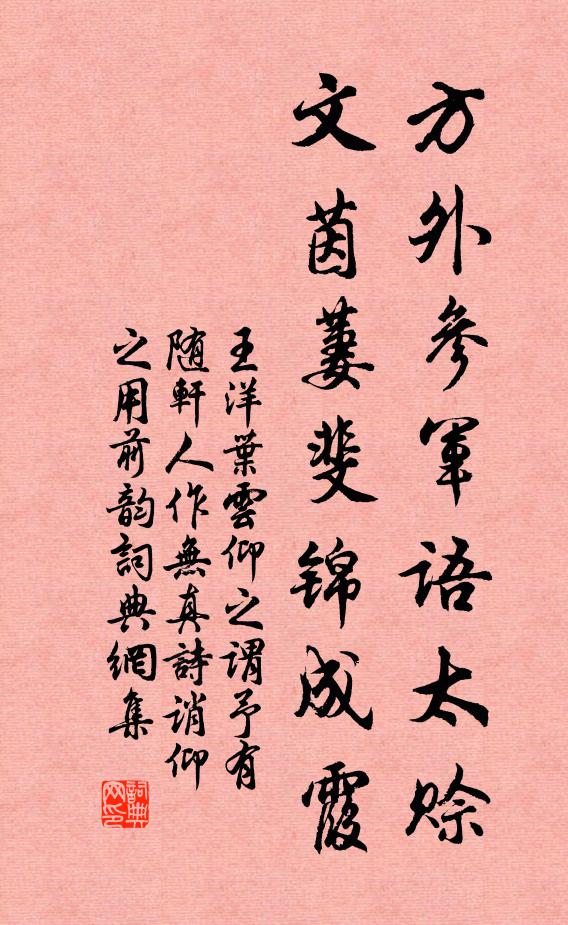 方外參軍語太賒
文茵萋斐锦成霞
王洋葉雲仰之謂予有
随軒人作無真詩誚仰
之用前韵詞典網集
詞典网印